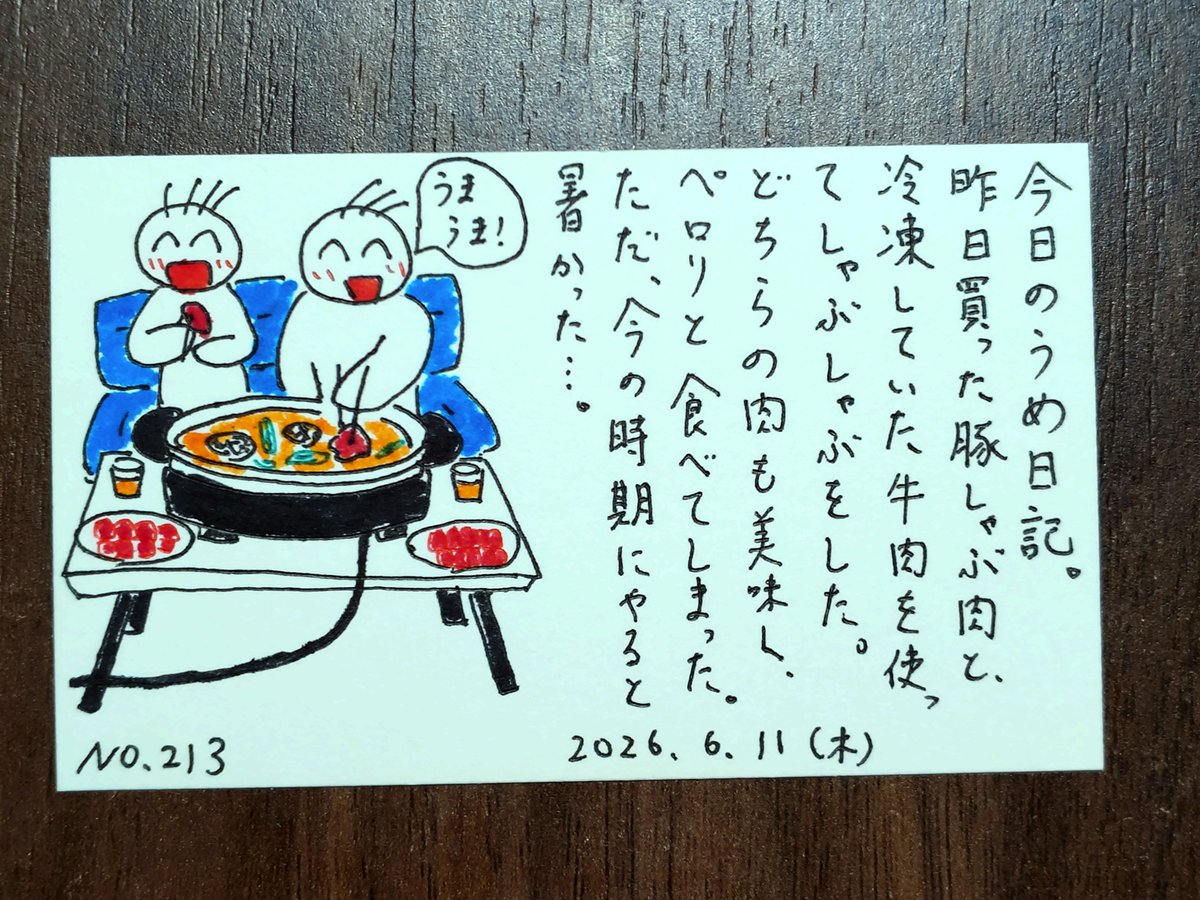 今日のうめ日記。
昨日買った豚しゃぶ肉と、
冷凍していた牛肉を使っ
てしゃぶしゃぶをした。
どちらの肉も美味しく、
ペロリと食べてしまった。
ただ、今の時期にやると
暑かった…。
うま
うま!
NO.213
2026.6.11(木)